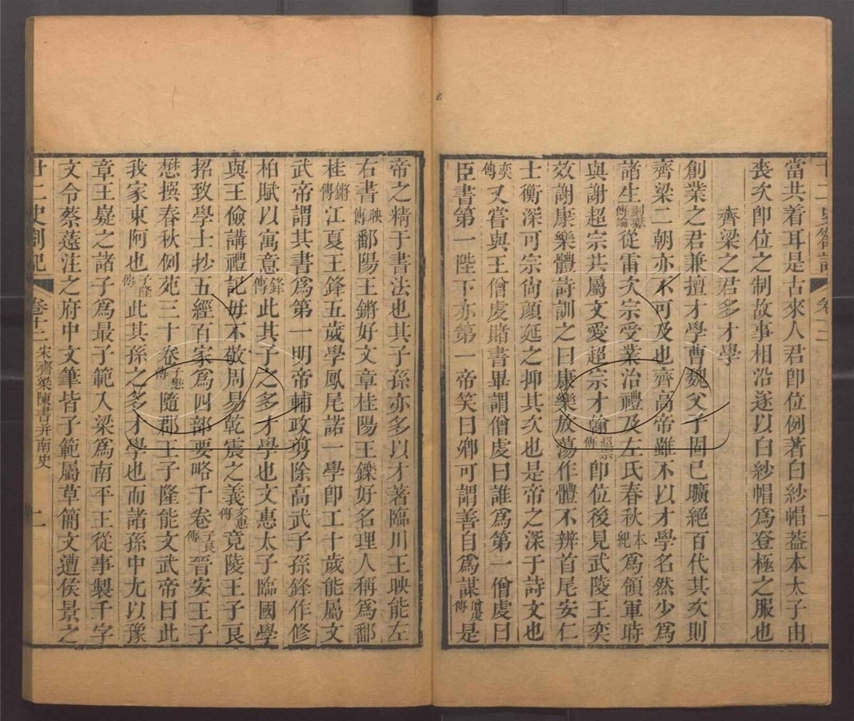 當共着耳是古來人君卽位例著白紗帽葢本太子由
喪次卽位之制故事相沿遂以白紗帽爲登極之服也
齊梁之君多才學
創業之君兼擅才學曹魏父子固已曠絕百代其次則
齊梁二朝亦不可及也齊高帝雖不以才學名然少爲
諸生從雷次宗受業治禮及左氏春秋本紀爲領軍時
與謝超宗共屬文愛超宗才翰超宗傳卽位後見武陵王奕
效謝康樂體詩訓之曰康樂放蕩作體不辨首尾安仁
士衡深可宗尚顏延之抑其次也是帝之深于詩文也
奕傳又嘗與王僧虔賭書畢謂僧虔曰誰爲第一僧虔曰
臣書第一陛下亦第一帝笑曰卿可謂善自爲謀僧虔傳是
帝之精于書法也其子孫亦多以才著臨川王映能左
右書映傳鄱陽王鏘好文章桂陽王鑠好名理人稱爲鄱
桂鏘傳江夏王鋒五歲學鳳尾諾一學卽工十歲能屬文
武帝謂其書爲第一明帝輔政剪除高武子孫鋒作修
柏賦以寓意鋒傳此其子之多才學也文惠太子臨國學
與王儉講禮記毋不敬周易乾震之義文惠傳竟陵王子良
招致學士抄五經百家爲四部要略千卷子良傳晉安王子
懋撰春秋例苑三十卷子懋傳隨郡王子隆能文武帝曰此
我家東阿也子隆傳此其孫之多才學也而諸孫中尤以豫
章王嶷之諸子爲最子範入梁爲南平王從事製千字
文令蔡薳注之府中文筆皆子範屬草簡文遭侯景之
廿二史劄記 卷十二 宋齊梁陳書并南史 二